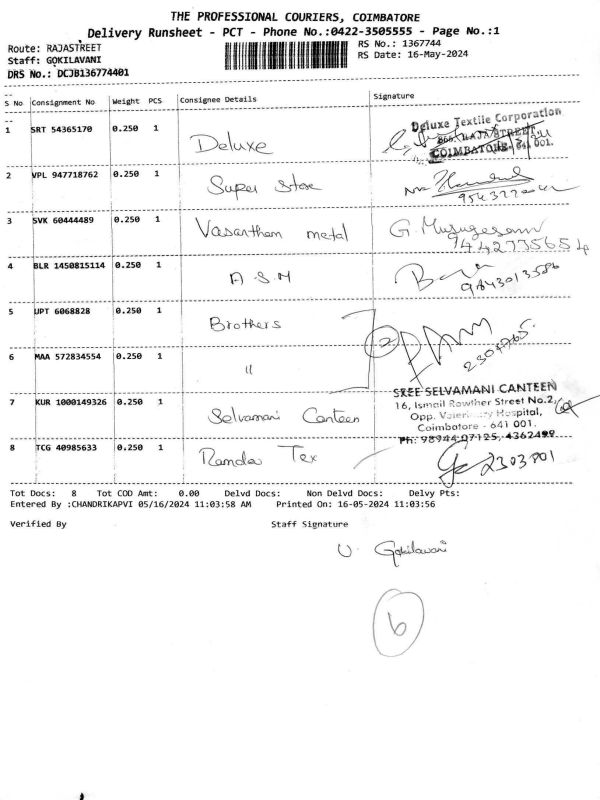 THE PROFESSIONAL COURIERS, COIMBATORE
Delivery Runsheet - PCT - Phone No.:0422-3505555 - Page No.:1
Route: RAJASTREET
RS No.: 1367744
Staff: GOKILAVANI
RS Date: 16-May-2024
DRS No.: DCJB136774401
S No Consignment No Weight PCS Consignee Details Signature
1 SRT 54365170 0.250 1 Deluxe
Deluxe Textile Corporation
RAJA STREET
COIMBATORE - 641 001.
2 VPL 947718762 0.250 1 Super Store
3 SVK 60444489 0.250 1 Vasantham metal G. Murugesan
4 BLR 1450815114 0.250 1 A S M
9843013586
5 UPT 6068828 0.250 1 Brothers 2
6 MAA 572834554 0.250 1 "
7 KUR 1000149326 0.250 1 Selvamani Canteen
SREE SELVAMANI CANTEEN
16, Ismail Rowther Street No.2,
Opp. Veterinary Hospital,
Coimbatore - 641 001.
Ph: 98944-07125, 4362499
8 TCG 40985633 0.250 1 Ramdev Tex 2303801
Tot Docs: 8 Tot COD Amt: 0.00 Delvd Docs: Non Delvd Docs: Delvy Pts:
Entered By :CHANDRIKAPVI 05/16/2024 11:03:58 AM Printed On: 16-05-2024 11:03:56
Verified By Staff Signature
U. Gokilavani
6